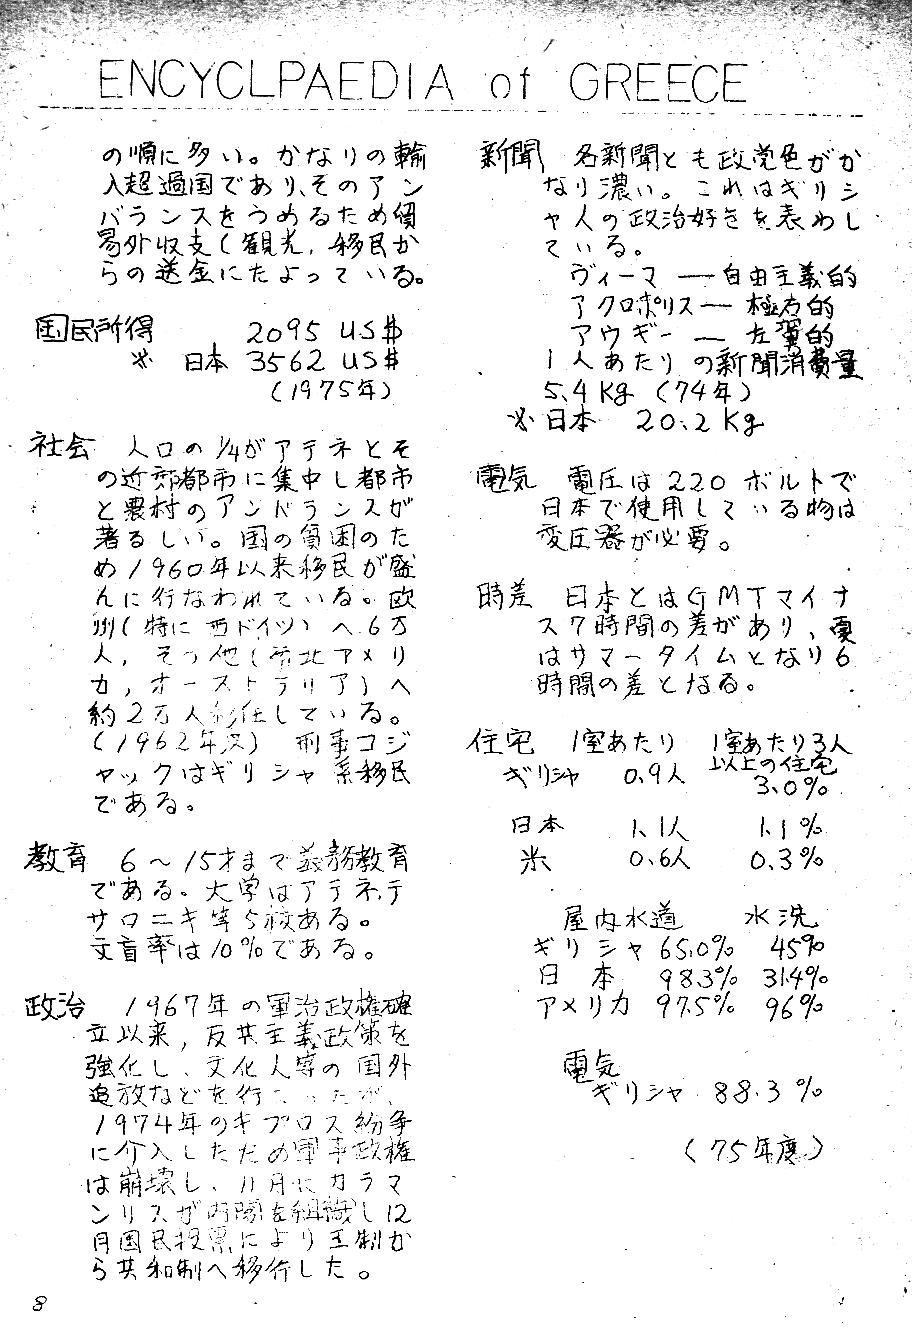 ENCYCLPAEDIA of GREECE
の順に多い。かなりの輸
入超過国であり、そのアン
バランスをうめるため貿
易外収支(観光,移民か
らの送金にたよっている。
国民所得 2095 US$
※ 日本 3562 US$
(1975年)
社会 人口の1/4がアテネとそ
の近郊都市に集中し都市
と農村のアンバランスが
著るしい。国の貧困のた
め1960年以来移民が盛
んに行なわれている。欧
州(特に西ドイツ)へ6万
人,その他(北アメリ
カ,オーストラリア)へ
約2万人移住している。
(1962年次) 刑事コジ
ャックはギリシャ系移民
である。
教育 6〜15才まで義務教育
である。大学はアテネ、テ
サロニキ等5校ある。
文盲率は10%である。
政治 1967年の軍治政権確
立以来,反共主義政策を
強化し、文化人等の国外
追放などを行なったが、
1974年のキプロス紛争
に介入したため軍事政権
は崩壊し、11月にカラマ
ンリスが内閣を組織し12
月国民投票により王制か
ら共和制へ移行した。
新聞 各新聞とも政党色がか
なり濃い。これはギリシ
ャ人の政治好きを表わし
ている。
ヴィーマ ― 自由主義的
アクロポリス ― 極右的
アウギー ― 左翼的
1人あたりの新聞消費量
5.4Kg (74年)
※日本 20.2Kg
電気 電圧は220ボルトで
日本で使用している物は
変圧器が必要。
時差 日本とはGMTマイナ
ス7時間の差があり、夏
はサマータイムとなり6
時間の差となる。
住宅 1室あたり 1室あたり3人
以上の住宅
ギリシャ 0.9人 3.0%
日本 1.1人 1.1%
米 0.6人 0.3%
屋内水道 水洗
ギリシャ 65.0% 45%
日本 98.3% 31.4%
アメリカ 97.5% 96%
電気
ギリシャ 88.3%
(75年度)
8